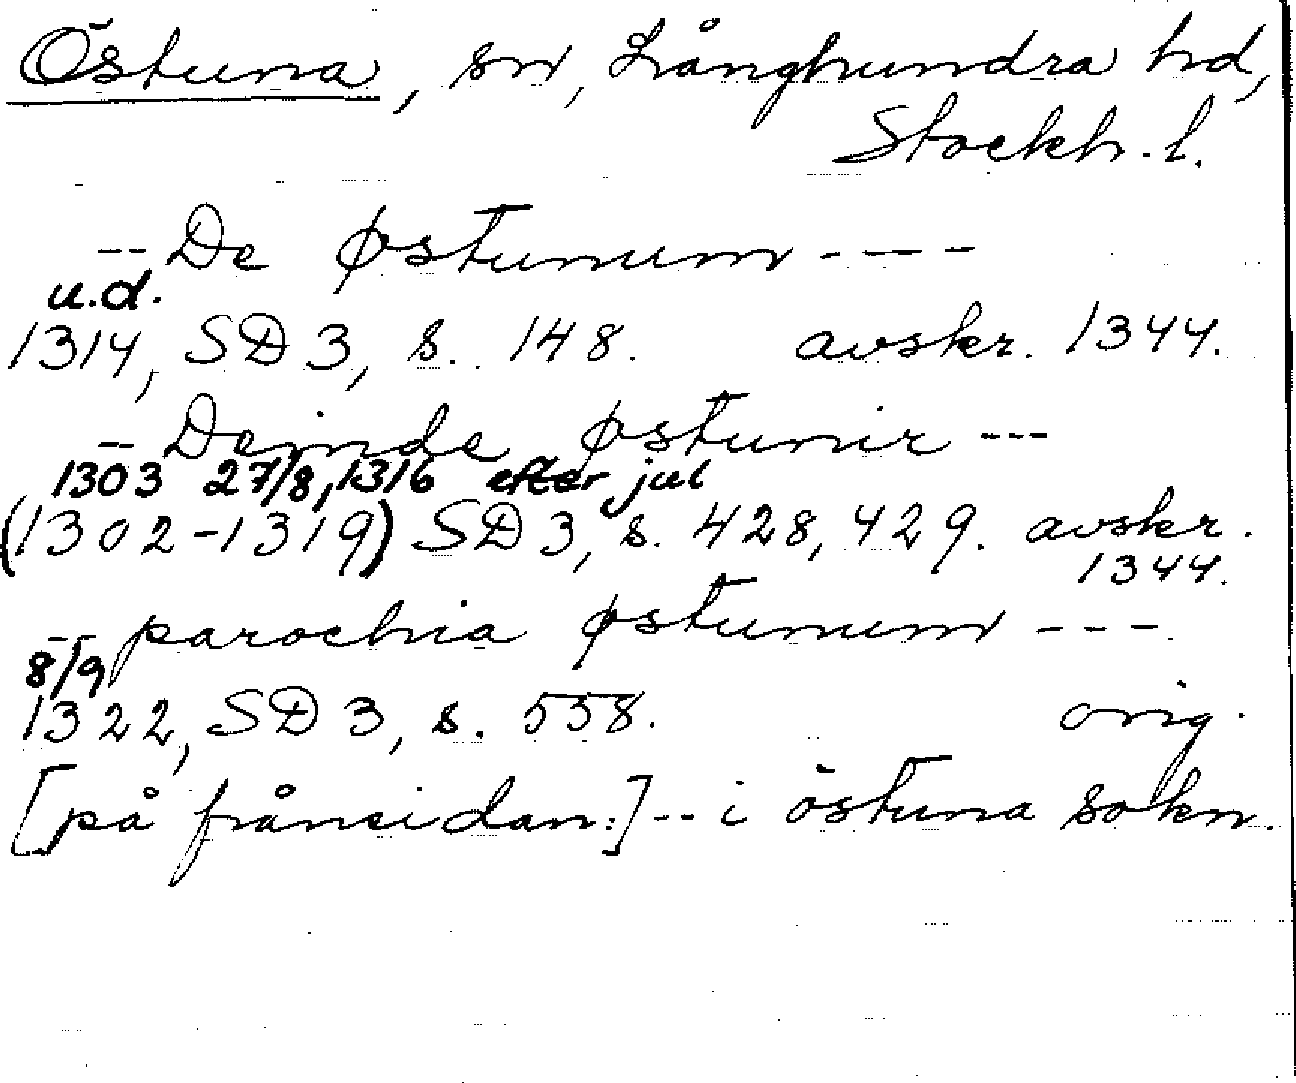 Östuna, sn, Långhundra hd,
Stockh. l.
-- De østunum ----
u.d.
1314, SD 3, s. 148. avskr. 1344.
-- Deinde østunir ---
1303 27/8, 1316 efter jul
(1302-1319) SD 3, s. 428, 429. avskr.
1344.
-- parochia østunum ---
8/9
1322, SD 3, s. 558. orig.
[på frånsidan:] -- i östuna sokn.